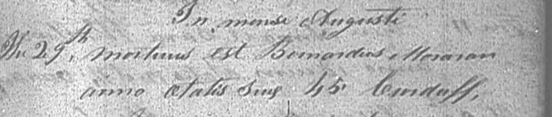 In mense Augusti
Die 29th, mortuus est Bernardus Moravan
anno etatis suæ 45 Curduff,